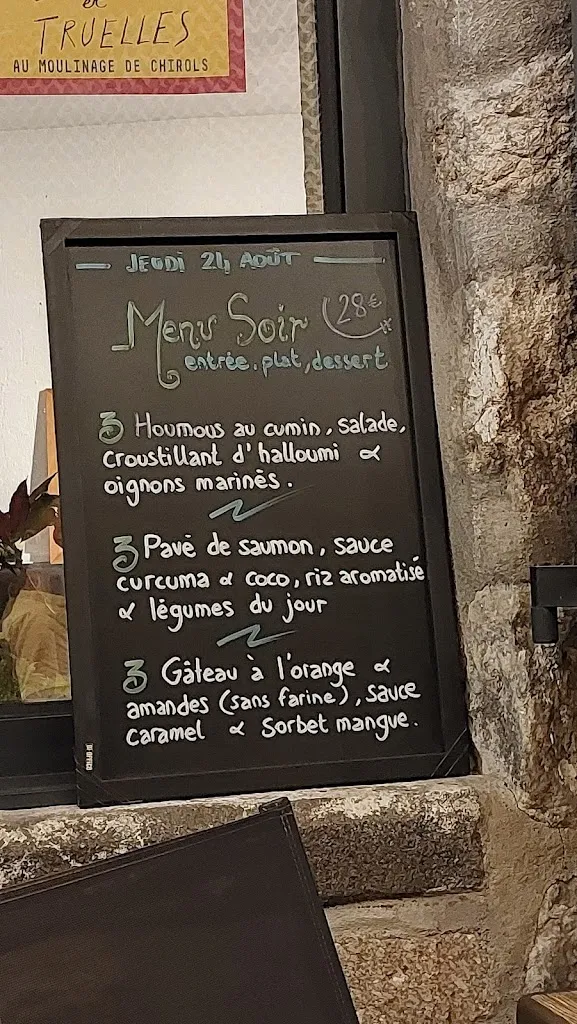 et
TRUELLES
AU MOULINAGE DE CHIROLS
JEUDI 24 AOÛT
Menu Soir 28€
entrée, plat, dessert
Houmous au cumin, salade,
croustillant d'halloumi &
oignons marinés.
Pavé de saumon, sauce
curcuma & coco, riz aromatisé
& légumes du jour
Gâteau à l'orange &
amandes (sans farine), sauce
caramel & Sorbet mangue.